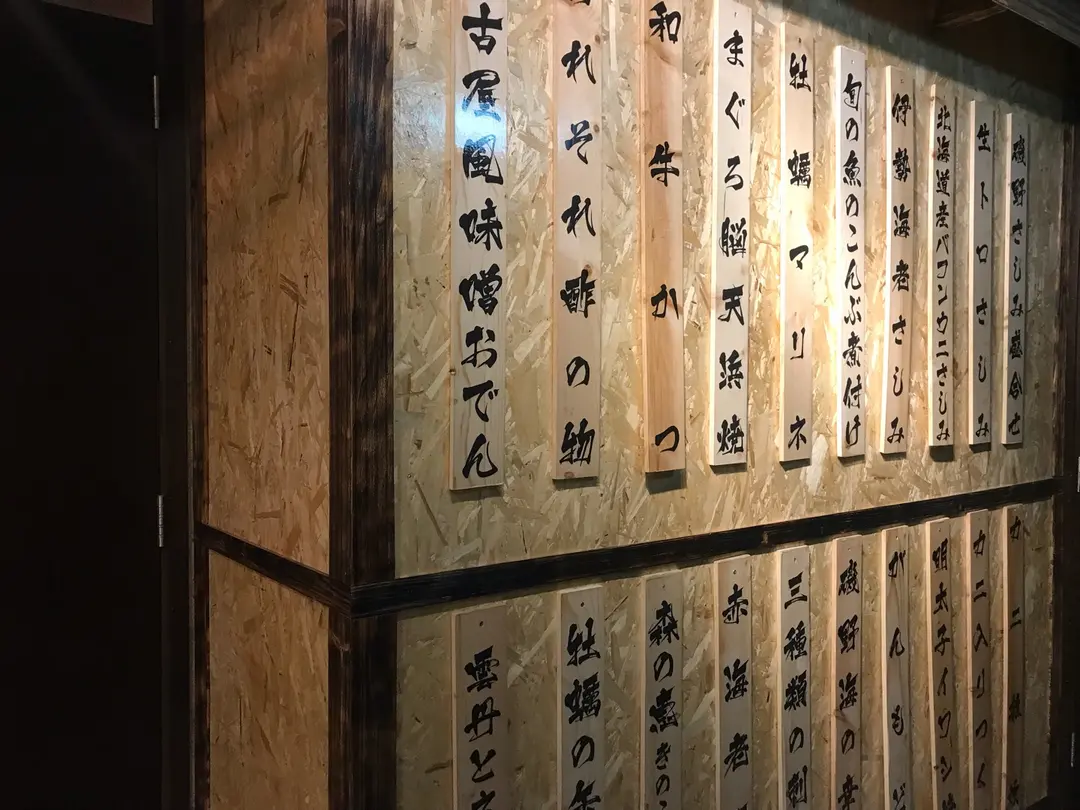 磯野さしみ盛合せ
生トロさしみ
北海道産バフンウニさしみ
伊勢海老さしみ
旬の魚のこんぶ煮付け
牡蠣マリネ
まぐろ脳天浜焼
和牛かつ
れそれ酢の物
古屋風味噌おでん
カニ
カニ入りつく
明太子イワシ
がんも
磯野海の幸
三種類の刺
赤海老
森の恵きのこ
牡蠣の
雲丹と